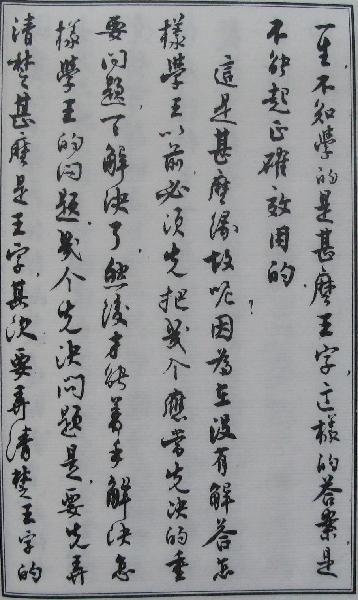 一生,不知學的是甚麼王字,这樣的答案,是
不能起正確效用的.
這是甚麼緣故呢?因為在没有解答怎
樣學王以前,必须先把幾个應當先决的重
要问题了解决了,然後才能著手解决怎
樣學王的问题,幾个先决问题是,要先弄
清楚甚麼是王字,其次要弄清楚王字的